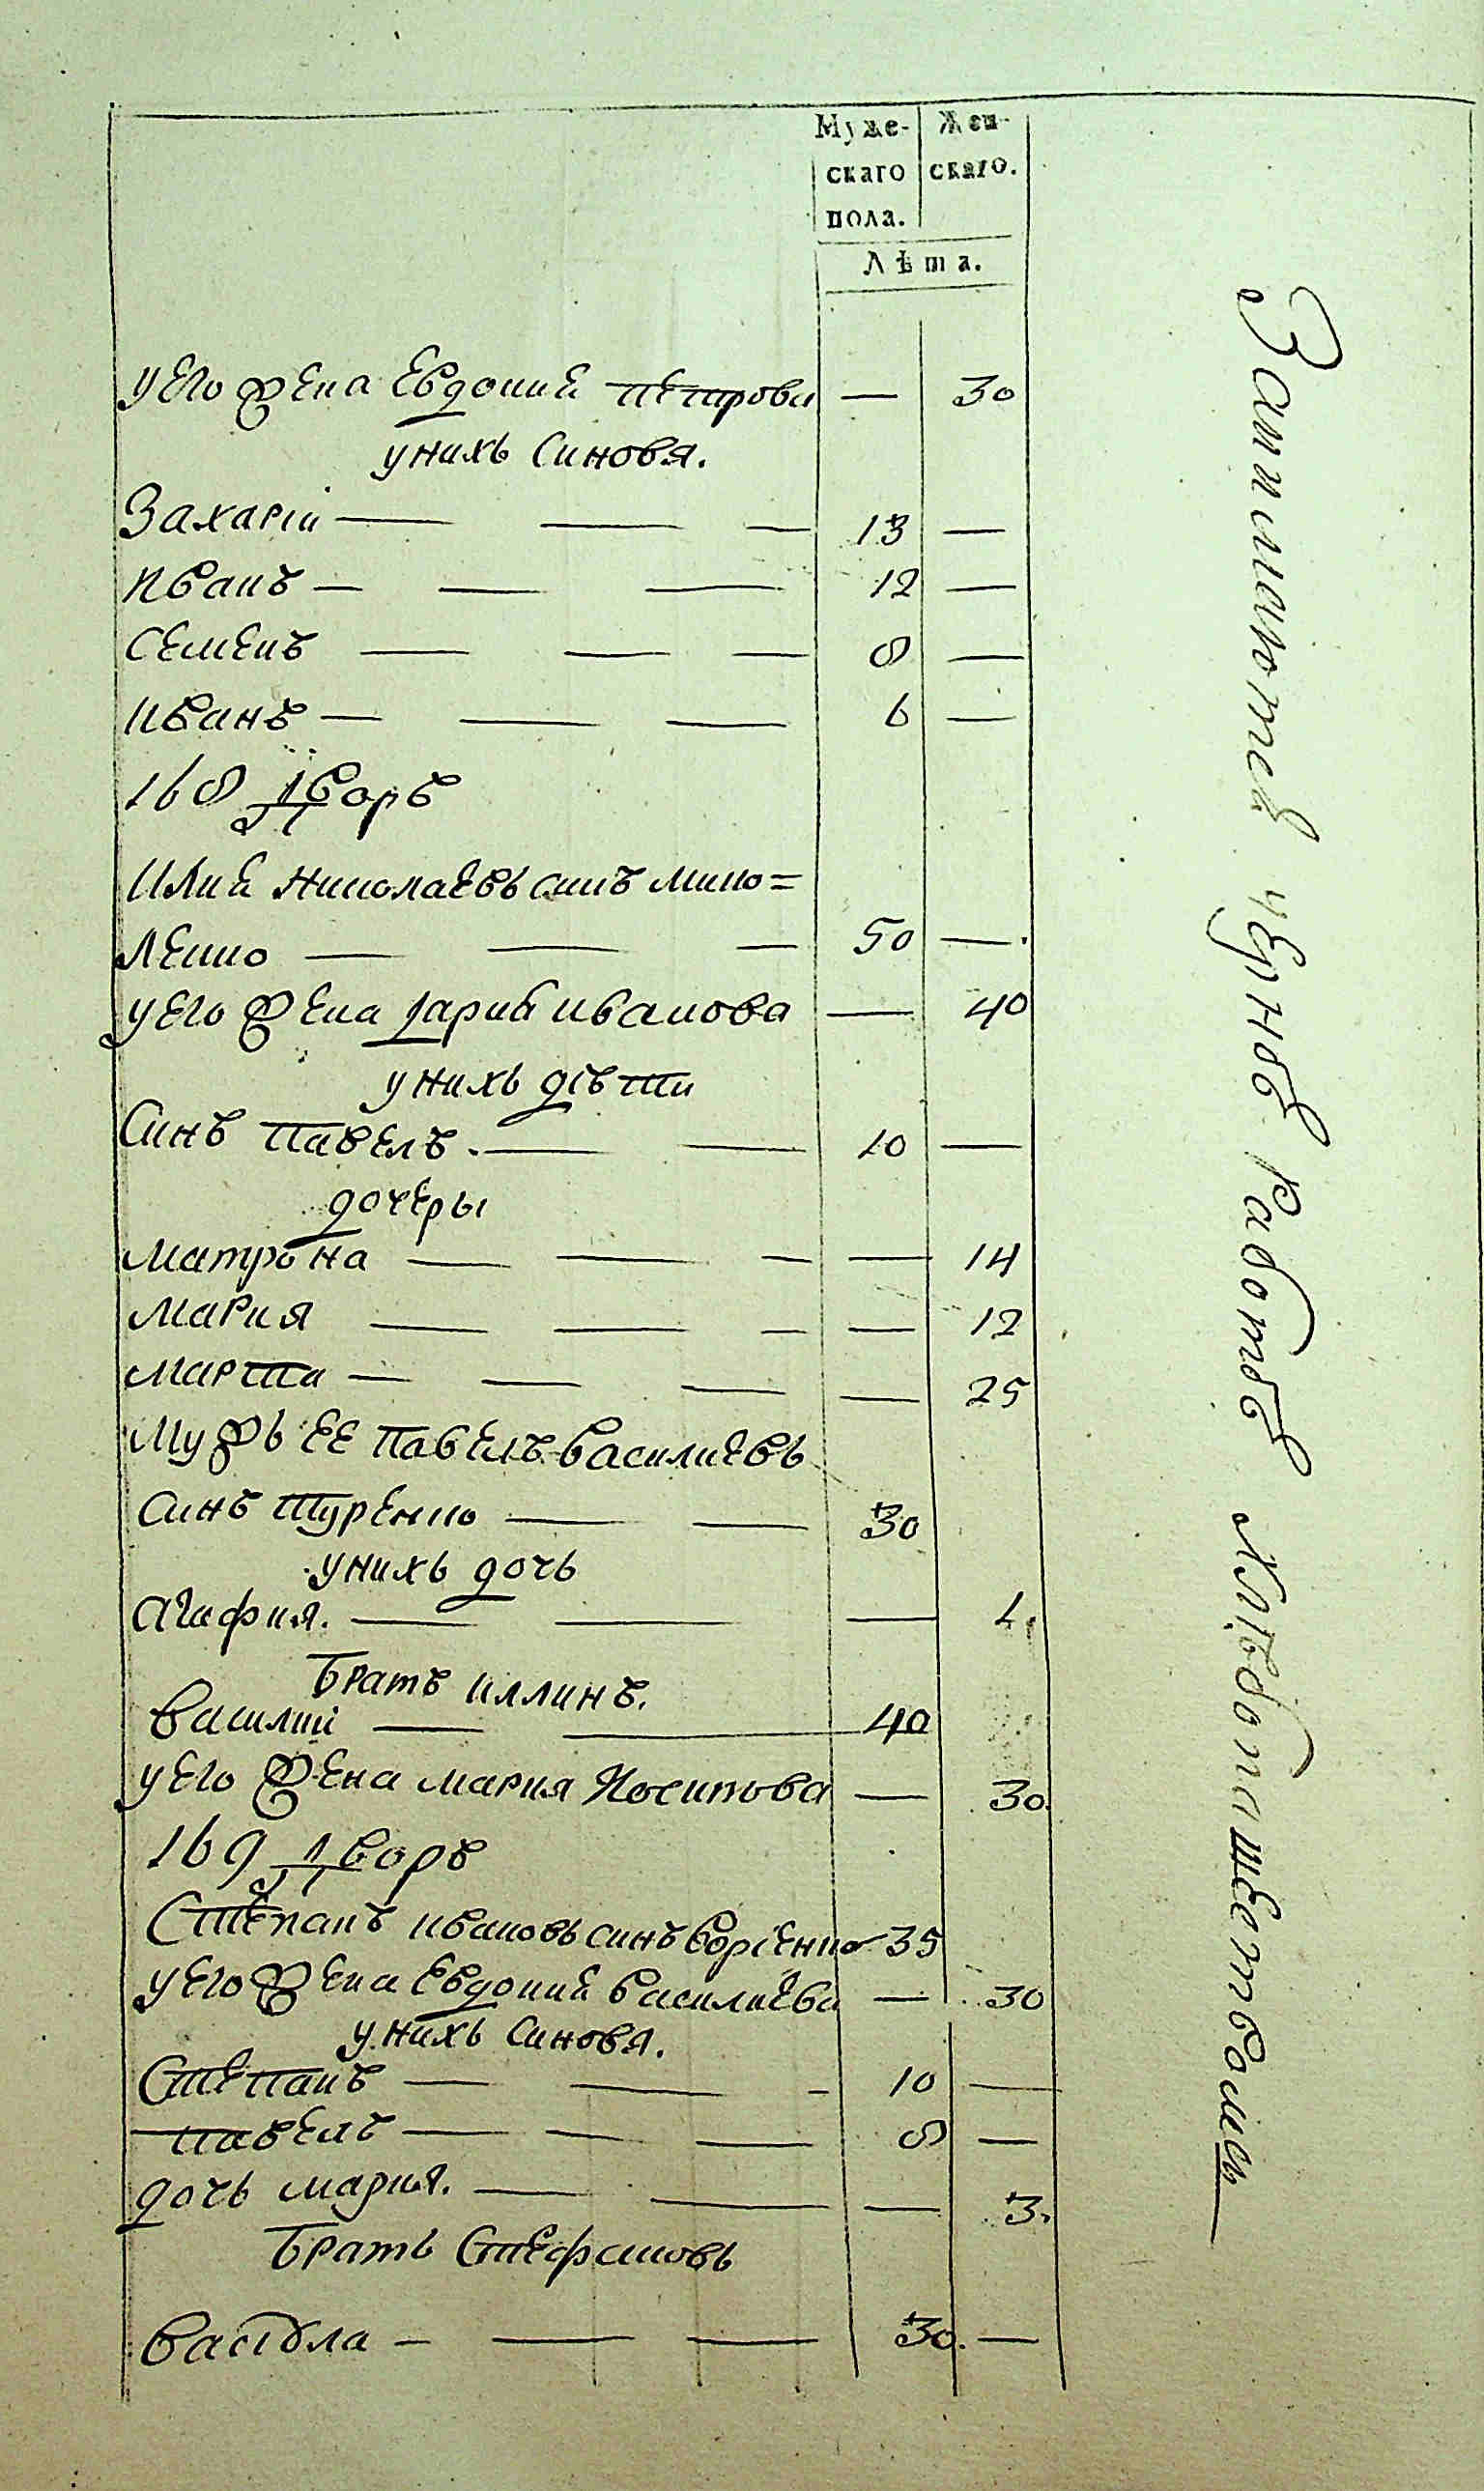 Муже- Жен-
скаго скаго.
пола.
Лѣта.
уего жена Евдокия петрова — 30
унихь Синовя.
Захарiи — 13 —
Иванъ — 12 —
Семенъ — 8 —
иванъ — 6 —
168 Дворъ
Илия Николаевь синъ мико=
ленко — 50 —
уего жена дария иванова — 40
унихь дѣти
Синъ павелъ. — 10 —
дочеры
матрона — 14
мария — 12
марта — 25
Мужь ее павелъ василиевь
синъ туренко — 30
унихь дочь
агафия. — 1.
Братъ иллинъ.
василий — 40
уего жена мария Иосипова — 30.
169 Дворъ
Степанъ ивановь синъ 35
уего жена Евдокия василиева — 30
унихь синовя.
Степанъ — 10 —
павелъ — 8 —
дочь мария. — 3.
Брать Стефановь
30. —
Занимаютса чернов работов хлѣбопашеством